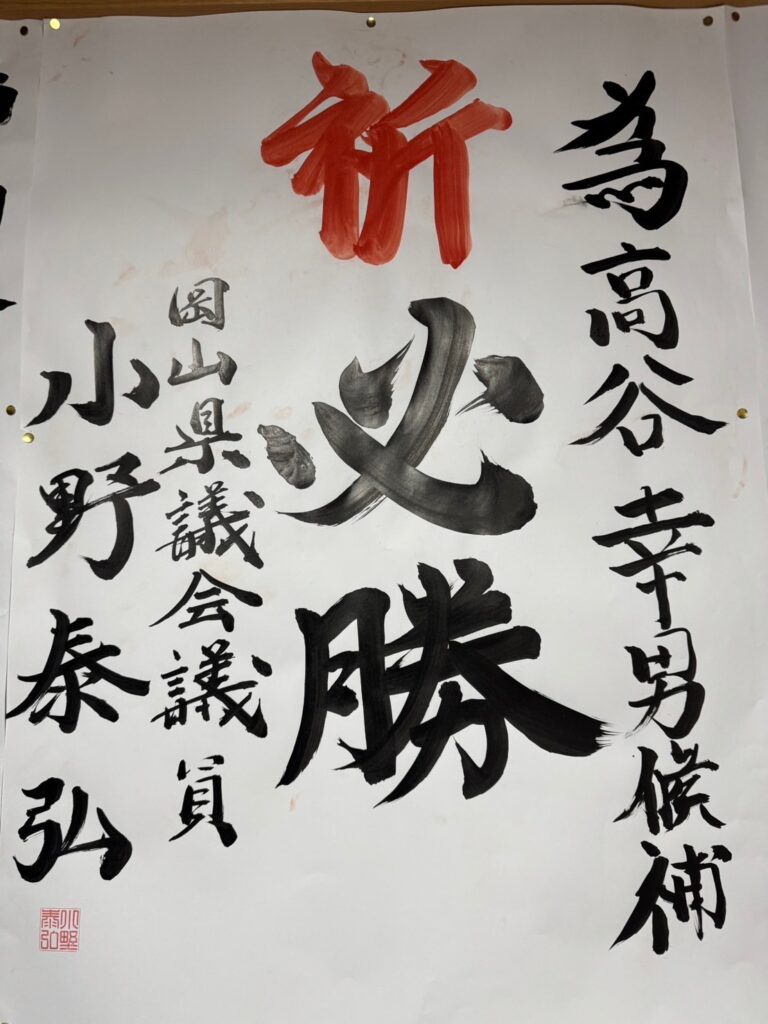 為高谷幸男候補
祈必勝
岡山県議会議員
小野泰弘
小野
泰弘